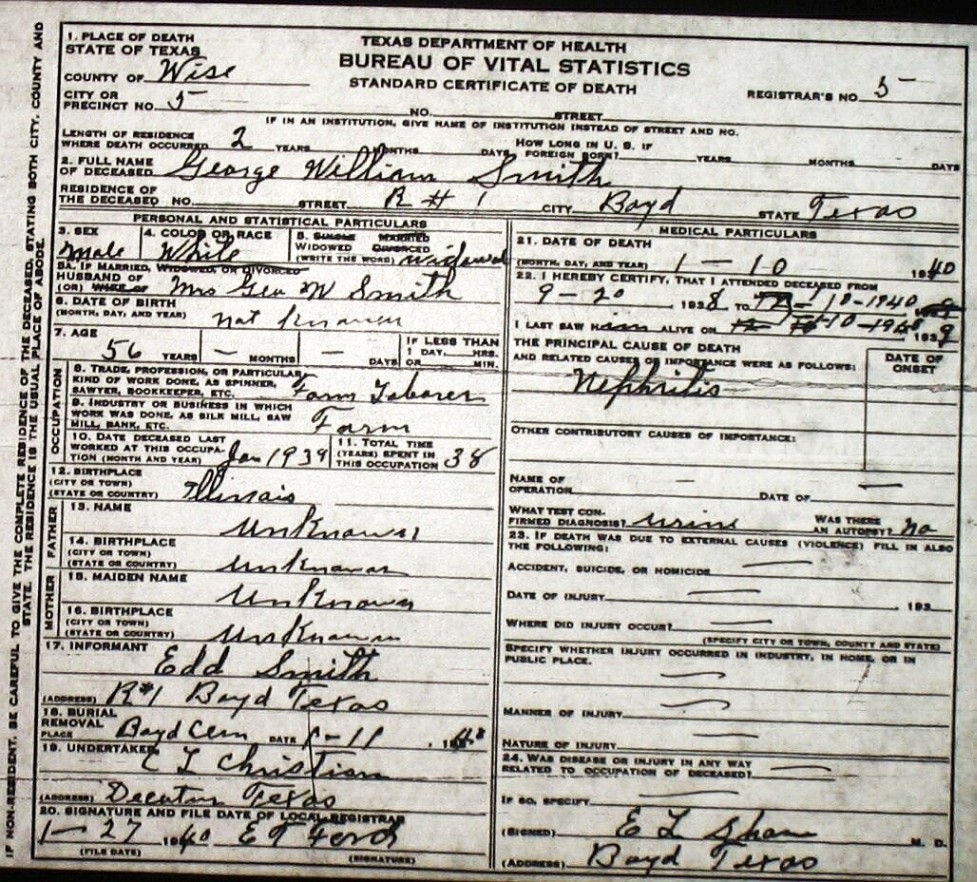 NON-RESIDENT. BE CAREFUL TO GIVE THE COMPLETE RESIDENCE OF THE DECEASED, STATING BOTH CITY, COUNTY AND
STATE. THE RESIDENCE IS THE USUAL PLACE OF ABODE.
TEXAS DEPARTMENT OF HEALTH
BUREAU OF VITAL STATISTICS
STANDARD CERTIFICATE OF DEATH
1. PLACE OF DEATH
STATE OF TEXAS
COUNTY OF Wise
CITY OR
PRECINCT NO. 5 NO. STREET
REGISTRAR'S NO. 5
IF IN AN INSTITUTION, GIVE NAME OF INSTITUTION INSTEAD OF STREET AND NO.
LENGTH OF RESIDENCE
WHERE DEATH OCCURRED 2 YEARS MONTHS DAYS
HOW LONG IN U. S. IF
FOREIGN BORN? YEARS MONTHS DAYS
2. FULL NAME
OF DECEASED George William Smith
RESIDENCE OF
THE DECEASED NO. STREET R # 1 CITY Boyd STATE Texas
PERSONAL AND STATISTICAL PARTICULARS
3. SEX
male
4. COLOR OR RACE
White
5. SINGLE MARRIED
WIDOWED DIVORCED
(WRITE THE WORD) widowed
5A. IF MARRIED, WIDOWED, OR DIVORCED
HUSBAND OF
(OR) WIFE OF Mrs Geo W Smith
6. DATE OF BIRTH
(MONTH, DAY, AND YEAR) not known
7. AGE
56 YEARS — MONTHS — DAYS
IF LESS THAN
1 DAY HRS.
OR MIN.
OCCUPATION
8. TRADE, PROFESSION, OR PARTICULAR
KIND OF WORK DONE, AS SPINNER,
SAWYER, BOOKKEEPER, ETC. Farm Laborer
9. INDUSTRY OR BUSINESS IN WHICH
WORK WAS DONE, AS SILK MILL, SAW
MILL, BANK, ETC. Farm
10. DATE DECEASED LAST
WORKED AT THIS OCCUPA-
TION (MONTH AND YEAR) Jan 1939
11. TOTAL TIME
(YEARS) SPENT IN
THIS OCCUPATION 38
12. BIRTHPLACE
(CITY OR TOWN)
(STATE OR COUNTRY) Illinois
FATHER
13. NAME
Unknown
14. BIRTHPLACE
(CITY OR TOWN)
(STATE OR COUNTRY) Unknown
MOTHER
15. MAIDEN NAME
Unknown
16. BIRTHPLACE
(CITY OR TOWN)
(STATE OR COUNTRY) Unknown
17. INFORMANT
Edd Smith
(ADDRESS) R#1 Boyd Texas
18. BURIAL
REMOVAL
PLACE Boyd Cem DATE 1-11, 19
19. UNDERTAKER
E L Christian
(ADDRESS) Decatur Texas
20. SIGNATURE AND FILE DATE OF LOCAL REGISTRAR
1-27 1940 E T Ford
(FILE DATE) (SIGNATURE)
MEDICAL PARTICULARS
21. DATE OF DEATH
(MONTH, DAY, AND YEAR) 1-10 1940
22. I HEREBY CERTIFY, THAT I ATTENDED DECEASED FROM
9-20 1938 TO 1-10-1940
I LAST SAW Him ALIVE ON 1-10-1940
THE PRINCIPAL CAUSE OF DEATH
AND RELATED CAUSES OF IMPORTANCE WERE AS FOLLOWS:
DATE OF
ONSET
Nephritis
OTHER CONTRIBUTORY CAUSES OF IMPORTANCE:
NAME OF
OPERATION — DATE OF —
WHAT TEST CON-
FIRMED DIAGNOSIS? urine
WAS THERE
AN AUTOPSY? no
23. IF DEATH WAS DUE TO EXTERNAL CAUSES (VIOLENCE) FILL IN ALSO
THE FOLLOWING:
ACCIDENT, SUICIDE, OR HOMICIDE —
DATE OF INJURY — , 193
WHERE DID INJURY OCCUR? —
(SPECIFY CITY OR TOWN, COUNTY AND STATE)
SPECIFY WHETHER INJURY OCCURRED IN INDUSTRY, IN HOME, OR IN
PUBLIC PLACE.
—
MANNER OF INJURY —
NATURE OF INJURY —
24. WAS DISEASE OR INJURY IN ANY WAY
RELATED TO OCCUPATION OF DECEASED? —
IF SO, SPECIFY —
(SIGNED) E L M. D.
(ADDRESS) Boyd Texas